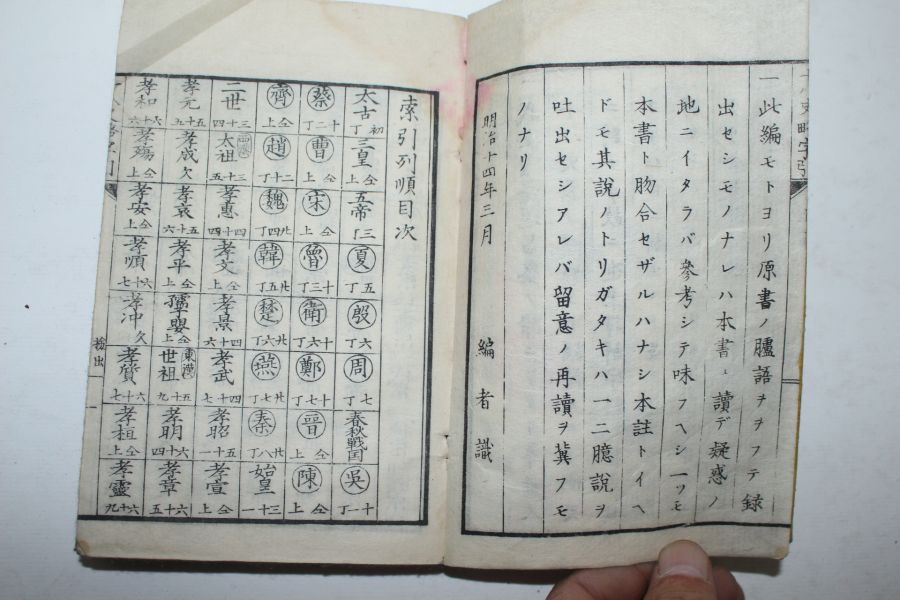 一此編モトヨリ原書ノ臚語ヲヲフテ録
出セシモノナレハ本書ニ讀デ疑惑ノ
地ニイタラバ參考シテ味フヘシ一ツモ
本書ト脗合セザルハナシ本註トイヘ
ドモ其說ノトリガタキハ一二臆說ヲ
吐出セシアレバ留意ノ再讀ヲ冀フモ
ノナリ
明治十四年三月
編者識
索引列順目次
太古 初丁 三皇 仝上 五帝 三丁 夏 五丁 殷 六丁 周 七丁 春秋戰国 吳 十一丁
蔡 十二丁 曹 仝上 宋 仝上 魯 十三丁 衛 十六丁 鄭 十七丁 晉 仝上 陳 仝上
齊 仝上 趙 二十丁 魏 廿四丁 韓 廿五丁 楚 廿六丁 燕 廿七丁 秦 廿八丁 始皇 三十一
二世 三十四 太祖 三十五 孝惠 四十四 孝文 仝上 孝景 四十六 孝武 四十七 孝昭 五十一 孝宣 仝上
孝元 五十五 孝成 欠 孝哀 五十六 孝平 仝上 孺子嬰 仝上 東漢 世祖 五十九 孝明 六十四 孝章 六十五
孝和 六十六 孝殤 仝上 孝安 仝上 孝順 六十七 孝沖 欠 孝質 六十七 孝桓 仝上 孝靈 六十九
檢出 一